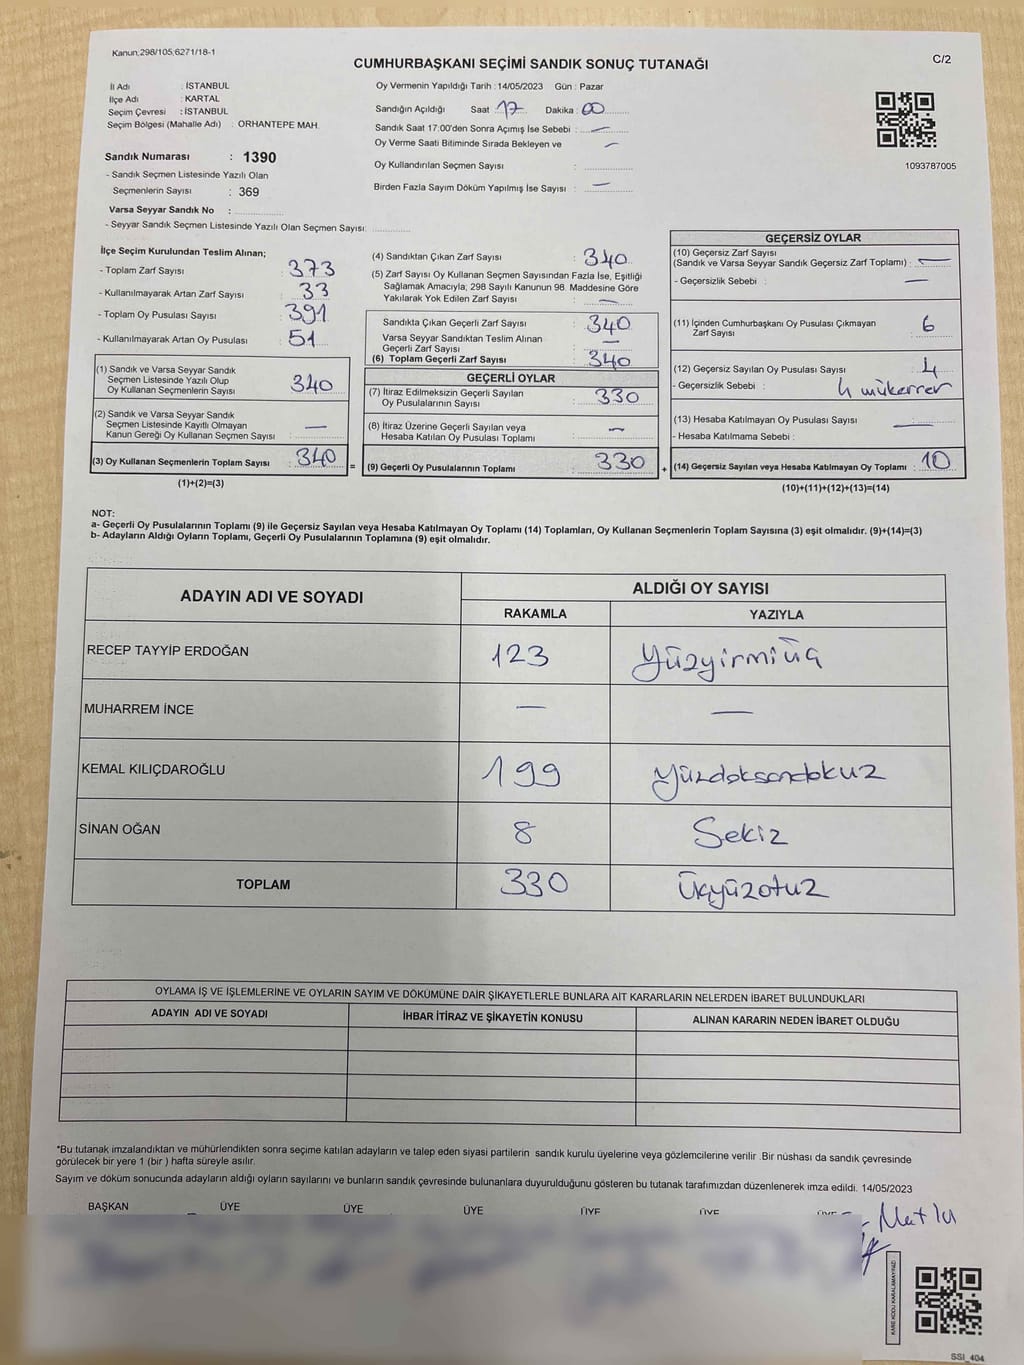 Kanun:298/105,6271/18-1
CUMHURBAŞKANI SEÇİMİ SANDIK SONUÇ TUTANAĞI
C/2
İl Adı : İSTANBUL
İlçe Adı : KARTAL
Seçim Çevresi : İSTANBUL
Seçim Bölgesi (Mahalle Adı) : ORHANTEPE MAH.
Sandık Numarası : 1390
- Sandık Seçmen Listesinde Yazılı Olan
Seçmenlerin Sayısı : 369
Varsa Seyyar Sandık No :
- Seyyar Sandık Seçmen Listesinde Yazılı Olan Seçmen Sayısı:
Oy Vermenin Yapıldığı Tarih : 14/05/2023 Gün : Pazar
Sandığın Açıldığı Saat 17 Dakika : 00
Sandık Saat 17:00'den Sonra Açımış İse Sebebi : —
Oy Verme Saati Bitiminde Sırada Bekleyen ve —
Oy Kullandırılan Seçmen Sayısı :
Birden Fazla Sayım Döküm Yapılmış İse Sayısı : —
1093787005
İlçe Seçim Kurulundan Teslim Alınan;
- Toplam Zarf Sayısı : 373
- Kullanılmayarak Artan Zarf Sayısı : 33
- Toplam Oy Pusulası Sayısı : 391
- Kullanılmayarak Artan Oy Pusulası : 51
(1) Sandık ve Varsa Seyyar Sandık
Seçmen Listesinde Yazılı Olup
Oy Kullanan Seçmenlerin Sayısı : 340
(2) Sandık ve Varsa Seyyar Sandık
Seçmen Listesinde Kayıtlı Olmayan
Kanun Gereği Oy Kullanan Seçmen Sayısı : —
(3) Oy Kullanan Seçmenlerin Toplam Sayısı : 340
(1)+(2)=(3)
=
(4) Sandıktan Çıkan Zarf Sayısı : 340
(5) Zarf Sayısı Oy Kullanan Seçmen Sayısından Fazla İse, Eşitliği
Sağlamak Amacıyla, 298 Sayılı Kanunun 98. Maddesine Göre
Yakılarak Yok Edilen Zarf Sayısı : —
Sandıkta Çıkan Geçerli Zarf Sayısı : 340
Varsa Seyyar Sandıktan Teslim Alınan
Geçerli Zarf Sayısı : —
(6) Toplam Geçerli Zarf Sayısı : 340
GEÇERLİ OYLAR
(7) İtiraz Edilmeksizin Geçerli Sayılan
Oy Pusulalarının Sayısı : 330
(8) İtiraz Üzerine Geçerli Sayılan veya
Hesaba Katılan Oy Pusulası Toplamı : —
(9) Geçerli Oy Pusulalarının Toplamı : 330
+
GEÇERSİZ OYLAR
(10) Geçersiz Zarf Sayısı
(Sandık ve Varsa Seyyar Sandık Geçersiz Zarf Toplamı) : —
- Geçersizlik Sebebi : —
(11) İçinden Cumhurbaşkanı Oy Pusulası Çıkmayan
Zarf Sayısı : 6
(12) Geçersiz Sayılan Oy Pusulası Sayısı : 4
- Geçersizlik Sebebi : 4 mükerrer
(13) Hesaba Katılmayan Oy Pusulası Sayısı : —
- Hesaba Katılmama Sebebi :
(14) Geçersiz Sayılan veya Hesaba Katılmayan Oy Toplamı : 10
(10)+(11)+(12)+(13)=(14)
NOT:
a- Geçerli Oy Pusulalarının Toplamı (9) ile Geçersiz Sayılan veya Hesaba Katılmayan Oy Toplamı (14) Toplamları, Oy Kullanan Seçmenlerin Toplam Sayısına (3) eşit olmalıdır. (9)+(14)=(3)
b- Adayların Aldığı Oyların Toplamı, Geçerli Oy Pusulalarının Toplamına (9) eşit olmalıdır.
ADAYIN ADI VE SOYADI ALDIĞI OY SAYISI
RAKAMLA YAZIYLA
RECEP TAYYİP ERDOĞAN 123 Yüzyirmiüç
MUHARREM İNCE — —
KEMAL KILIÇDAROĞLU 199 Yüzdoksandokuz
SİNAN OĞAN 8 Sekiz
TOPLAM 330 Üçyüzotuz
OYLAMA İŞ VE İŞLEMLERİNE VE OYLARIN SAYIM VE DÖKÜMÜNE DAİR ŞİKAYETLERLE BUNLARA AİT KARARLARIN NELERDEN İBARET BULUNDUKLARI
ADAYIN ADI VE SOYADI İHBAR İTİRAZ VE ŞİKAYETİN KONUSU ALINAN KARARIN NEDEN İBARET OLDUĞU
*Bu tutanak imzalandıktan ve mühürlendikten sonra seçime katılan adayların ve talep eden siyasi partilerin sandık kurulu üyelerine veya gözlemcilerine verilir .Bir nüshası da sandık çevresinde
görülecek bir yere 1 (bir ) hafta süreyle asılır.
Sayım ve döküm sonucunda adayların aldığı oyların sayılarını ve bunların sandık çevresinde bulunanlara duyurulduğunu gösteren bu tutanak tarafımızdan düzenlenerek imza edildi. 14/05/2023
BAŞKAN ÜYE ÜYE ÜYE ÜYE ÜYE ÜYE
Mutlu
KARE KODU KARALAMAYINIZ!
SSI_404